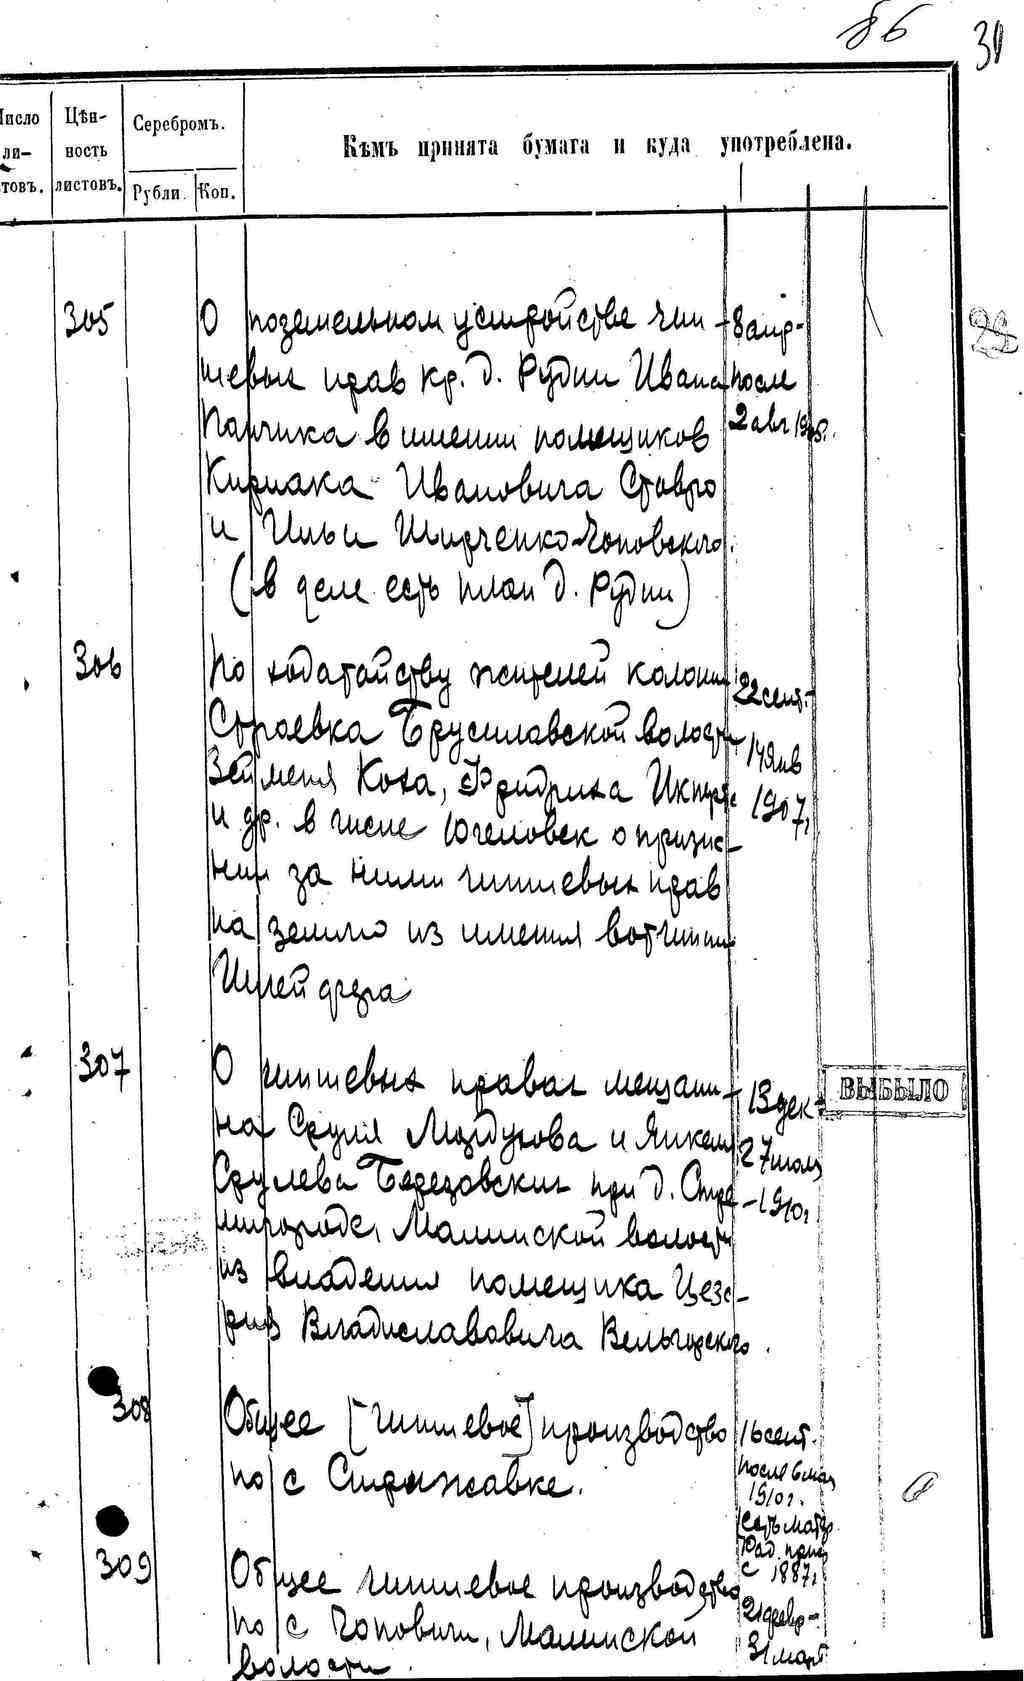 86
31
Число листовъ.
Цѣнность листовъ.
Серебромъ.
Рубли.
Коп.
Кѣмъ принята бумага и куда употреблена.
305
О поземельном устройстве чин-
шевых прав кр. д. Рудни Ивана
Панчика в имении помещиков
Кириака Ивановича Ставро
и Ильи Ширченко-Чоповского.
(в деле есть план д. Рудни)
8 апр-
после
2 авг 1905г.
29
306
По ходатайству жителей колонии
Строевка Брусиловской волости
Коха, Фридриха
и др. в числе 10 человек о призна-
нии за ними чиншевых прав
на землю из имения вотчины
22 сент.-
14 янв
1907г
307
О чиншевых правах мещани-
на Сруля Мордухова и Янкеля
Срулева Березовских при д. Стре-
мигороде, Малинской волости
из владения помещика Цеза-
рия Владиславовича Вельгорского.
13 дек-
27 июля
-1910г
ВЫБЫЛО
308
Общее [чиншевое] производство
по с Стрижавке.
16 сент.
после 6 мая
1910г.
есть матер.
с 1887г
309
Общее чиншевое производство
по с Чоповичи, Малинской
волости.
21 февр-
31 март